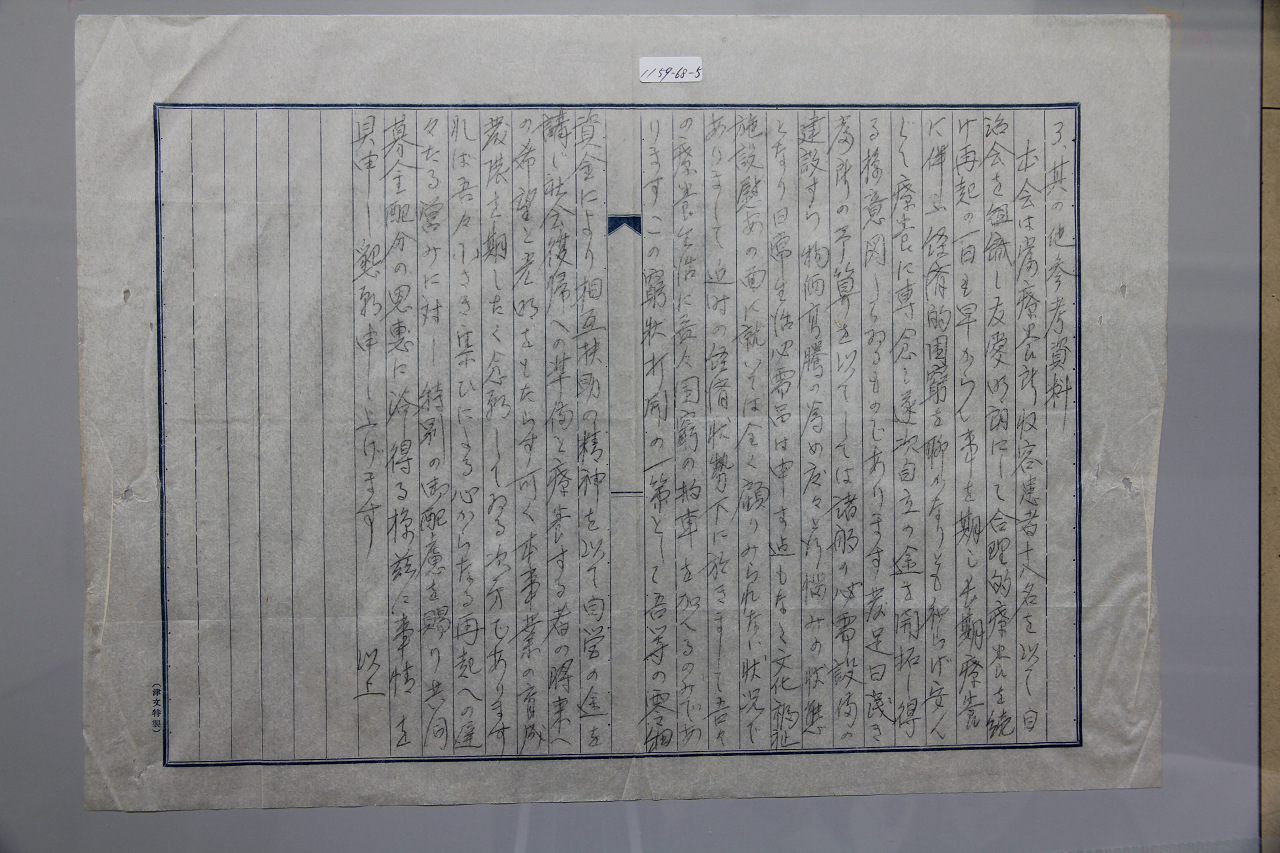 1159-68-5
3、其の他参考資料
本会は当療養所収容患者十八名を以て自
治会を組織し友愛明朗にして合理的療養を続
け再起の一日も早からん事を期し長期療養
に伴ふ経済的困窮を聊かなりとも和らげ安ん
じて療養に専念し逐次自立の途を開拓し得
る様意図してゐるものであります 発足日浅き
為所の予算を以てしては諸般の必需設備の
建設すら物価高騰の為め度々 悩みの状態
となり日常生活必需品は申す迄もなく文化福祉
施設慰安の面に就いては全く顧りみられない状況で
ありまして 近時の経済状勢下に於きまして吾々
の療養生活に益々困窮の拍車を加へるのみであ
ります この窮状打開の一策として吾等の零細
資金により相互扶助の精神を以て自営の途を
講じ社会復帰への準備と療養する者の将来へ
の希望と光明をもたらす可く本事業の育成
発展を期したく念願してゐる次第であります
れば吾々小さき集ひによる心からなる再起への遅
々たる営みに対し特別の御配慮を賜り共同
募金配分の恩恵に浴得る様茲に事情を
具申し懇願申し上げます
以上
(津文特製)